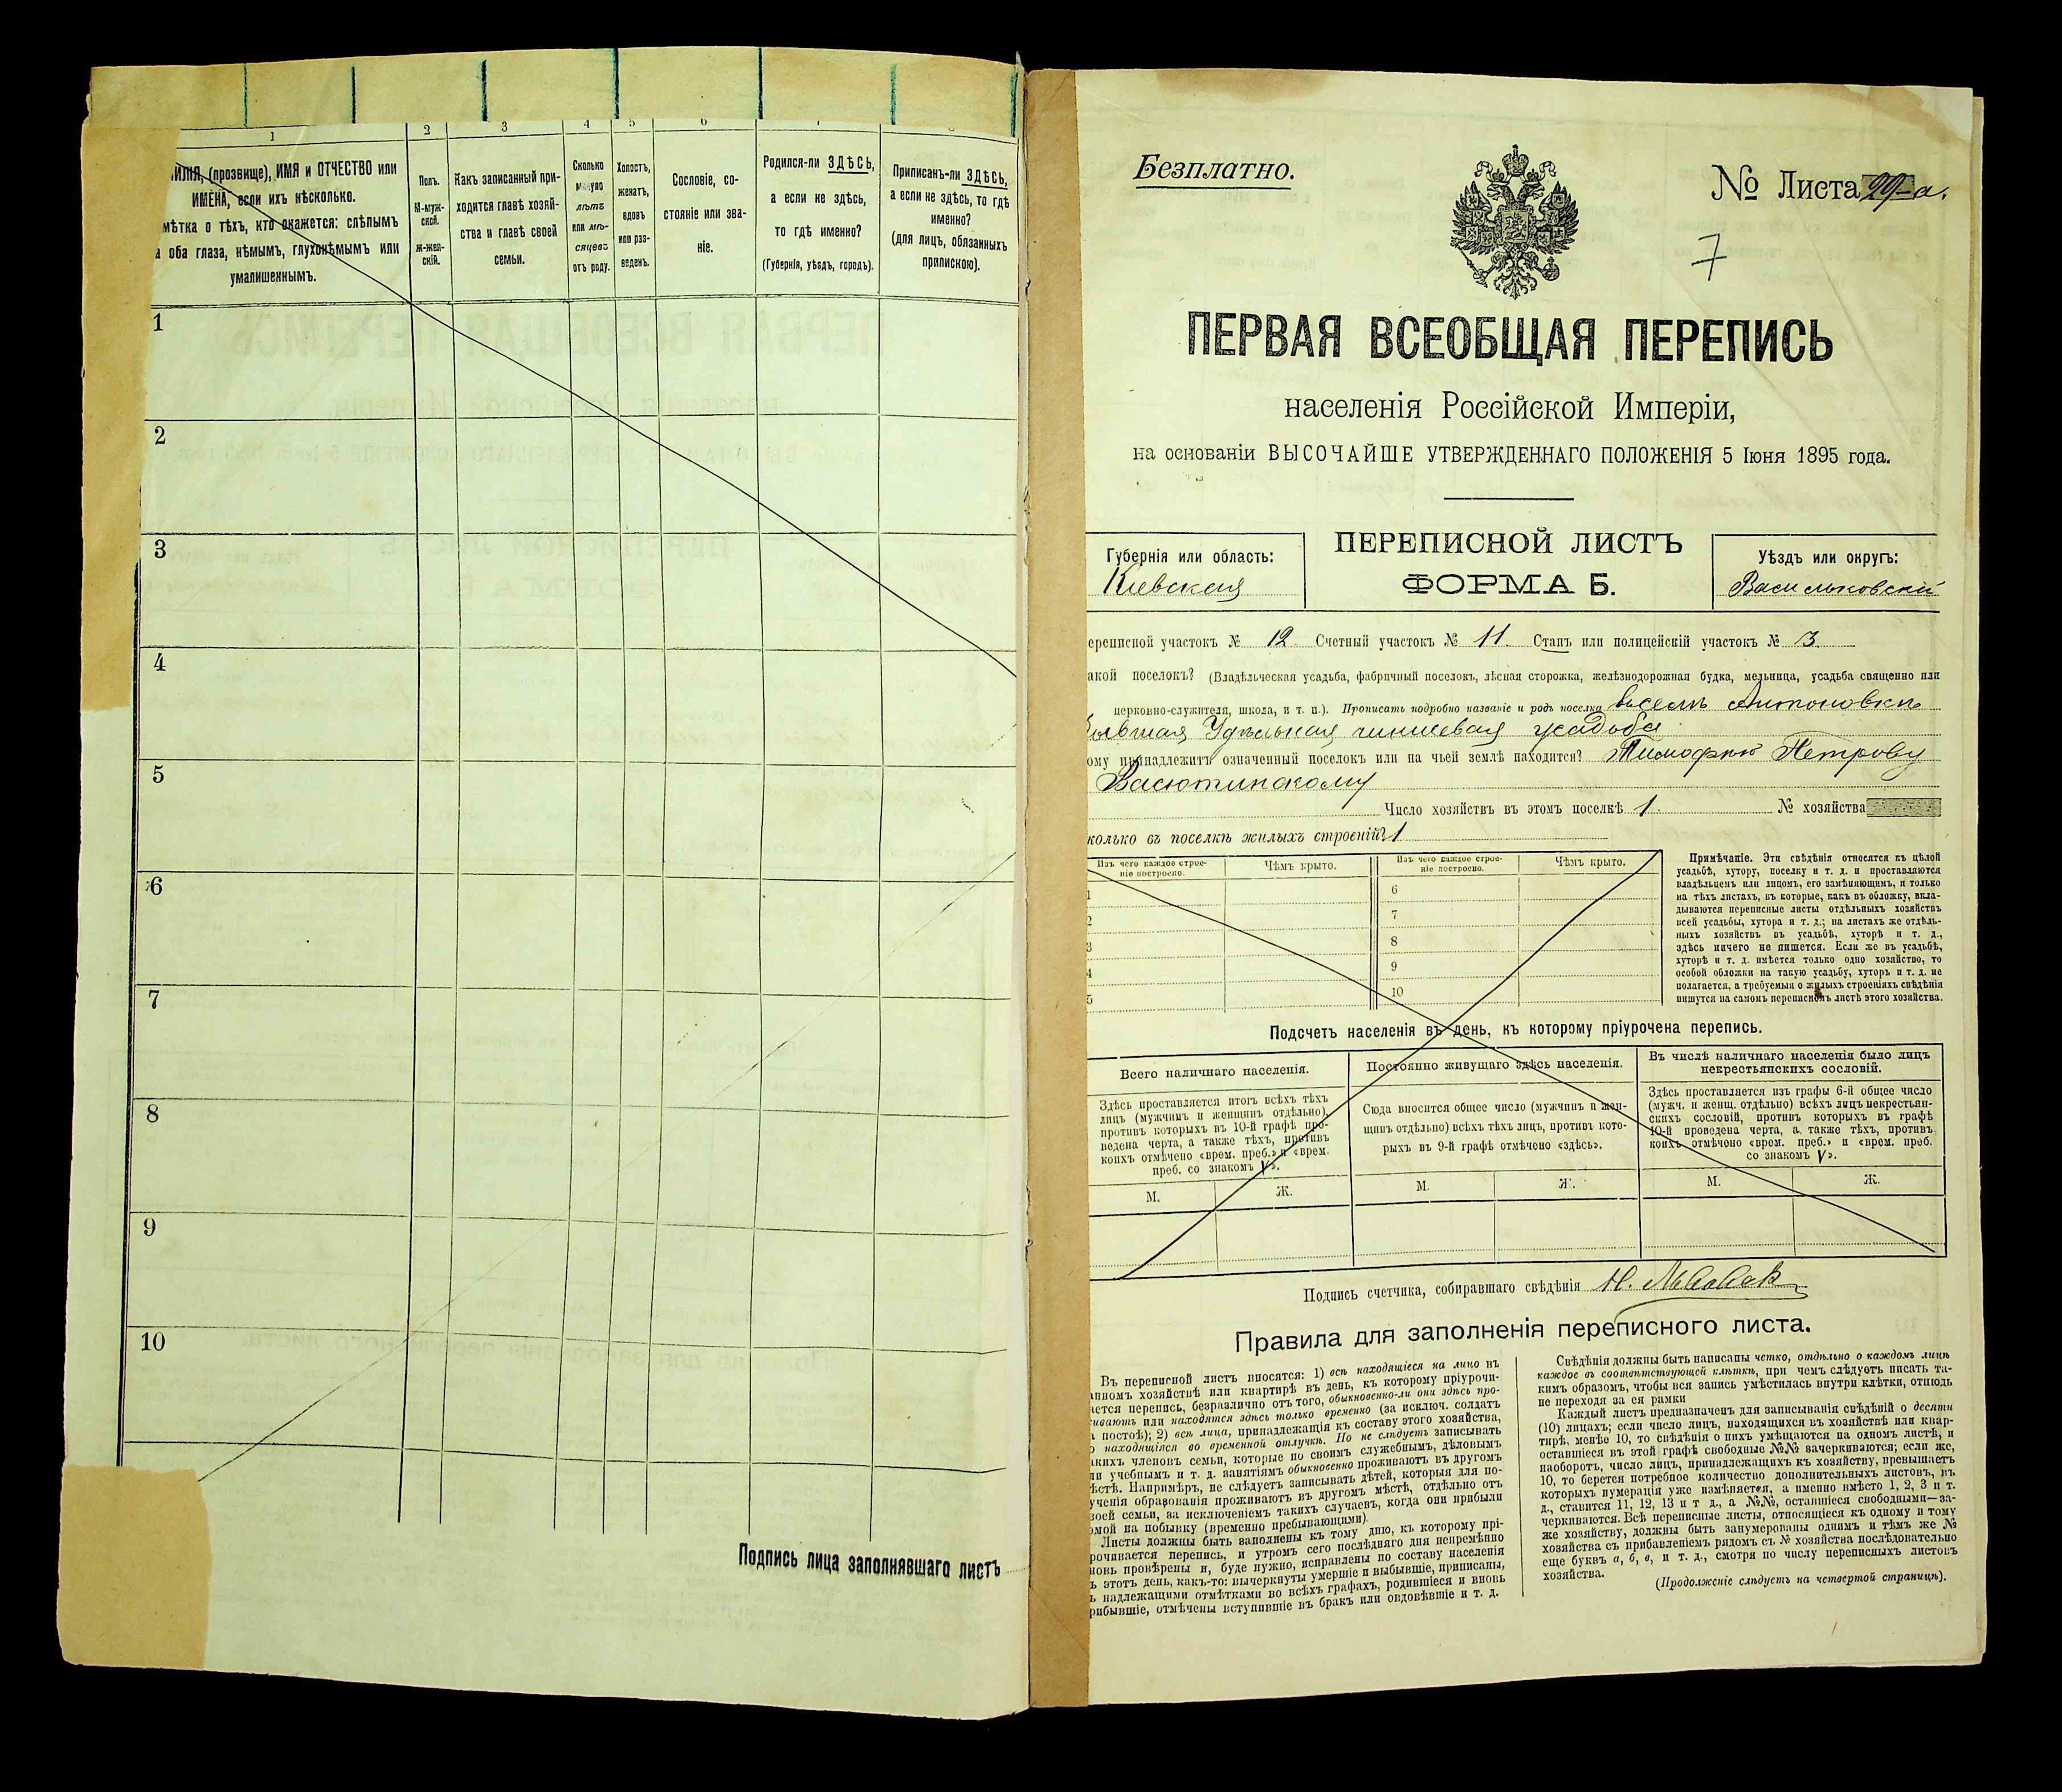 1
2
3
4
5
6
ИЛІЯ, (прозвище), ИМЯ и ОТЧЕСТВО или
ИМЕНА, если ихъ нѣсколько.
мѣтка о тѣхъ, кто окажется: слѣпымъ
а оба глаза, нѣмымъ, глухонѣмымъ или
умалишеннымъ.
Полъ.
М-муж-
ской.
Ж-жен-
скій.
Какъ записанный при-
ходится главѣ хозяй-
ства и главѣ своей
семьи.
Сколько
минуло
лѣтъ
или мѣ-
сяцевъ
отъ роду.
Холостъ,
женатъ,
вдовъ
или раз-
веденъ.
Сословіе, со-
стояніе или зва-
ніе.
Родился-ли ЗДѢСЬ,
а если не здѣсь,
то гдѣ именно?
(Губернія, уѣздъ, городъ).
Приписанъ-ли ЗДѢСЬ,
а если не здѣсь, то гдѣ
именно?
(для лицъ, обязанныхъ
припискою).
1
2
3
4
5
6
7
8
9
10
Подпись лица заполнявшаго листъ
Безплатно.
№ Листа 29-а.
7
ПЕРВАЯ ВСЕОБЩАЯ ПЕРЕПИСЬ
населенія Россійской Имперіи,
на основаніи ВЫСОЧАЙШЕ УТВЕРЖДЕННАГО ПОЛОЖЕНІЯ 5 Іюня 1895 года.
Губернія или область:
Кіевская
ПЕРЕПИСНОЙ ЛИСТЪ
ФОРМА Б.
Уѣздъ или округъ:
Васильковскій
ереписной участокъ № 12 Счетный участокъ № 11. Станъ или полицейскій участокъ № 3
акой поселокъ? (Владѣльческая усадьба, фабричный поселокъ, лѣсная сторожка, желѣзнодорожная будка, мельница, усадьба священно или
церковно-служителя, школа, и т. п.). Прописать подробно названіе и родъ поселка
бывшая Удѣльная чиншевая усадьба
ому принадлежитъ означенный поселокъ или на чьей землѣ находится? Тимофею Петрову
Васютинскому
Число хозяйствъ въ этомъ поселкѣ 1. № хозяйства
колько въ поселкѣ жилыхъ строеній? 1
Изъ чего каждое строе-
ніе построено.
Чѣмъ крыто.
Изъ чего каждое строе-
ніе построено.
Чѣмъ крыто.
1
2
3
4
5
6
7
8
9
10
Примѣчаніе. Эти свѣдѣнія относятся къ цѣлой
усадьбѣ, хутору, поселку и т. д. и проставляются
владѣльцемъ или лицомъ, его замѣняющимъ, и только
на тѣхъ листахъ, въ которые, какъ въ обложку, вкла-
дываются переписные листы отдѣльныхъ хозяйствъ
всей усадьбы, хутора и т. д.; на листахъ же отдѣль-
ныхъ хозяйствъ въ усадьбѣ, хуторѣ и т. д.,
здѣсь ничего не пишется. Если же въ усадьбѣ,
хуторѣ и т. д. имѣется только одно хозяйство, то
особой обложки на такую усадьбу, хуторъ и т. д. не
полагается, а требуемыя о жилыхъ строеніяхъ свѣдѣнія
пишутся на самомъ переписномъ листѣ этого хозяйства.
Подсчетъ населенія въ день, къ которому пріурочена перепись.
Всего наличнаго населенія.
Здѣсь проставляется итогъ всѣхъ тѣхъ
лицъ (мужчинъ и женщинъ отдѣльно),
противъ которыхъ въ 10-й графѣ про-
ведена черта, а также тѣхъ, противъ
коихъ отмѣчено «врем. преб.» и «врем.
преб. со знакомъ V».
М.
Ж.
Постоянно живущаго здѣсь населенія.
Сюда вносится общее число (мужчинъ и жен-
щинъ отдѣльно) всѣхъ тѣхъ лицъ, противъ кото-
рыхъ въ 9-й графѣ отмѣчено «здѣсь».
М.
Ж.
Въ числѣ наличнаго населенія было лицъ
некрестьянскихъ сословій.
Здѣсь проставляется изъ графы 6-й общее число
(мужч. и женщ. отдѣльно) всѣхъ лицъ некрестьян-
скихъ сословій, противъ которыхъ въ графѣ
10-й проведена черта, а также тѣхъ, противъ
коихъ отмѣчено «врем. преб.» и «врем. преб.
со знакомъ V».
М.
Ж.
Подпись счетчика, собиравшаго свѣдѣнія
Правила для заполненія переписного листа.
Въ переписной листъ вносятся: 1) всѣ находящіеся на лицо въ
анномъ хозяйствѣ или квартирѣ въ день, къ которому пріурочи-
ается перепись, безразлично отъ того, обыкновенно-ли они здѣсь про-
живаютъ или находятся здѣсь только временно (за исключ. солдатъ
а постоѣ); 2) всѣ лица, принадлежащія къ составу этого хозяйства,
о находящіяся во временной отлучкѣ. Но не слѣдуетъ записывать
акихъ членовъ семьи, которые по своимъ служебнымъ, дѣловымъ
ли учебнымъ и т. д. занятіямъ обыкновенно проживаютъ въ другомъ
ѣстѣ. Напримѣръ, не слѣдуетъ записывать дѣтей, которыя для по-
ученія образованія проживаютъ въ другомъ мѣстѣ, отдѣльно отъ
воей семьи, за исключеніемъ такихъ случаевъ, когда они прибыли
омой на побывку (временно пребывающими).
Листы должны быть заполнены къ тому дню, къ которому прі-
рочивается перепись, и утромъ сего послѣдняго дня непремѣнно
новь провѣрены и, буде нужно, исправлены по составу населенія
ъ этотъ день, какъ-то: вычеркнуты умершіе и выбывшіе, приписаны,
ъ надлежащими отмѣтками во всѣхъ графахъ, родившіеся и вновь
рибывшіе, отмѣчены вступившіе въ бракъ или овдовѣвшіе и т. д.
Свѣдѣнія должны быть написаны четко, отдѣльно о каждомъ лицѣ
каждое въ соотвѣтствующей клѣткѣ, при чемъ слѣдуетъ писать та-
кимъ образомъ, чтобы вся запись умѣстилась внутри клѣтки, отнюдь
не переходя за ея рамки
Каждый листъ предназначенъ для записыванія свѣдѣній о десяти
(10) лицахъ; если число лицъ, находящихся въ хозяйствѣ или квар-
тирѣ, менѣе 10, то свѣдѣнія о нихъ умѣщаются на одномъ листѣ, и
оставшіеся въ этой графѣ свободные №№ зачеркиваются; если же,
наоборотъ, число лицъ, принадлежащихъ къ хозяйству, превышаетъ
10, то берется потребное количество дополнительныхъ листовъ, въ
которыхъ нумерація уже измѣняется, а именно вмѣсто 1, 2, 3 и т.
д., ставится 11, 12, 13 и т д., а №№, оставшіеся свободными—за-
черкиваются. Всѣ переписные листы, относящіеся къ одному и тому
же хозяйству, должны быть занумерованы однимъ и тѣмъ же №
хозяйства съ прибавленіемъ рядомъ съ № хозяйства послѣдовательно
еще буквъ а, б, в, и т. д., смотря по числу переписныхъ листовъ
хозяйства.
(Продолженіе слѣдуетъ на четвертой страницѣ).